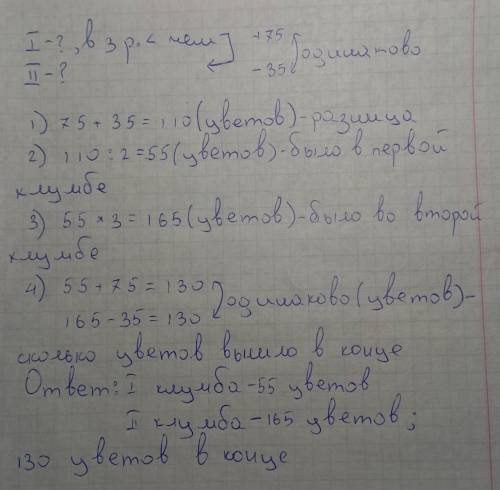 I - ?, в 3 р. < чем +75
II - ? -35 одинаково
1) 75 + 35 = 110 (цветов) - разница
2) 110 : 2 = 55 (цветов) - было в первой
клумбе
3) 55 × 3 = 165 (цветов) - было во второй
клумбе
4) 55 + 75 = 130
165 - 35 = 130 одинаково (цветов) -
сколько цветов вышло в конце
Ответ: I клумба - 55 цветов
II клумба - 165 цветов;
130 цветов в конце